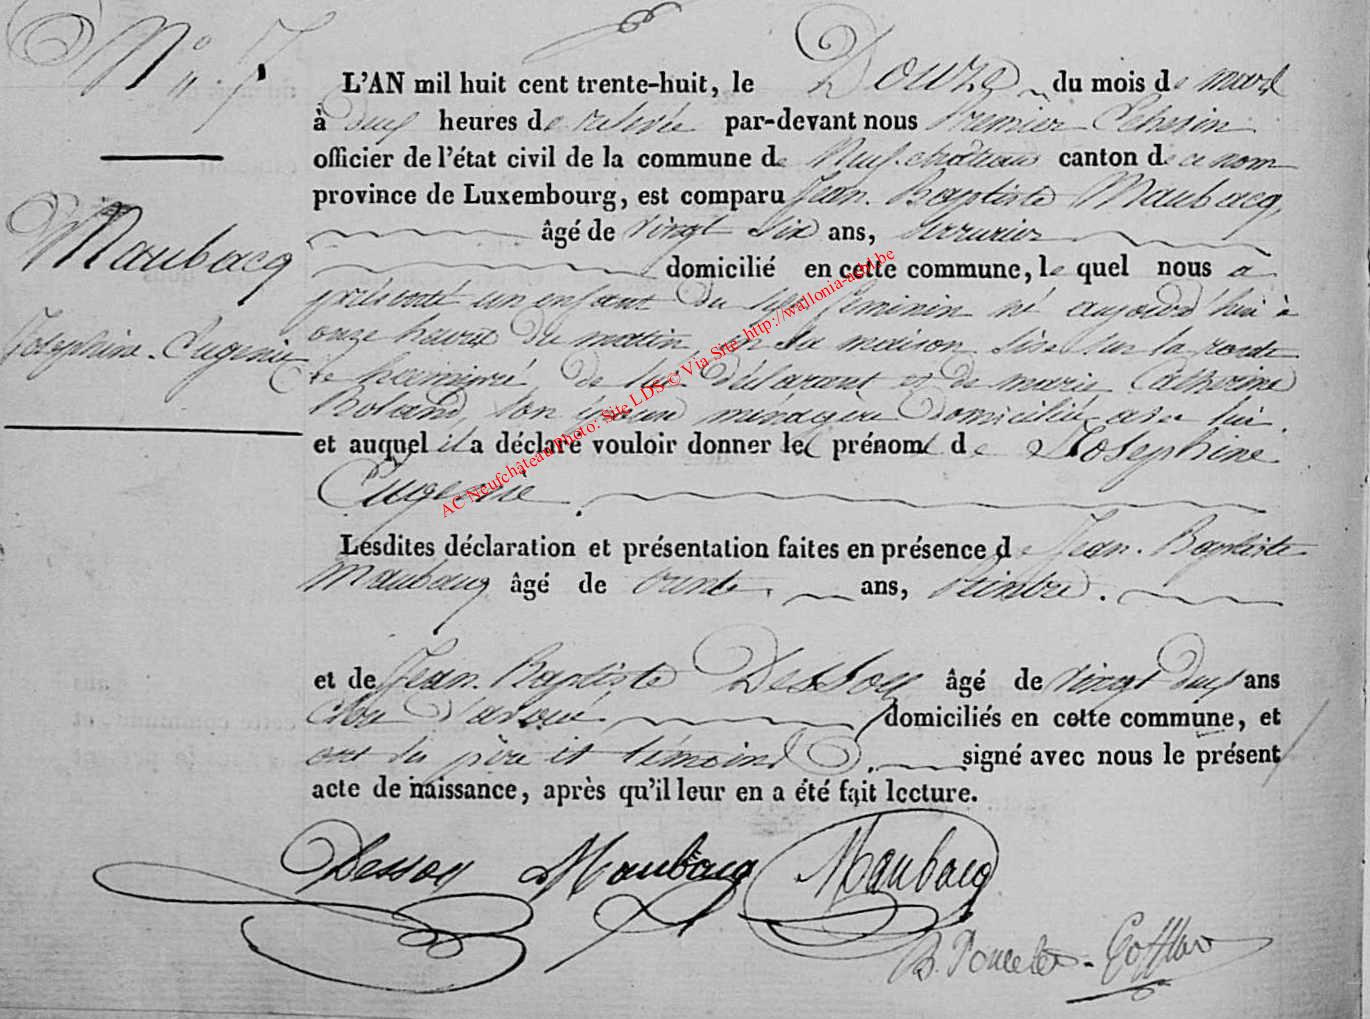 N° 7
L'AN mil huit cent trente-huit, le Douze du mois de mars
à deux heures de relevée par-devant nous Premier Echevin
officier de l'état civil de la commune de Neufchateau canton de ce nom
province de Luxembourg, est comparu Jean Baptiste Maubacq
âgé de vingt six ans, serrurier
Maubacq
domicilié en cette commune, le quel nous a
présenté un enfant du sexe feminin né aujourd'hui à
Josephine Eugenie
onze heures du matin en sa maison sise sur la route
de hamipré, de lui déclarant et de marie Catherine
Roland, son épouse ménagère domiciliée avec lui
et auquel il a déclaré vouloir donner les prénoms de Josephine
Eugenie.
Lesdites déclaration et présentation faites en présence de Jean Baptiste
Maubacq âgé de trente ans, Peintre.
et de Jean Baptiste Dessoy âgé de vingt deux ans
d'avoué domiciliés en cette commune, et
ont les père et témoins signé avec nous le présent
acte de naissance, après qu'il leur en a été fait lecture.
Dessoy Maubacq Maubacq
B. Poncelet-Gofflav
AC Neufchâteau Photo: Site LDS © Via Site http://wallonia-asbl.be